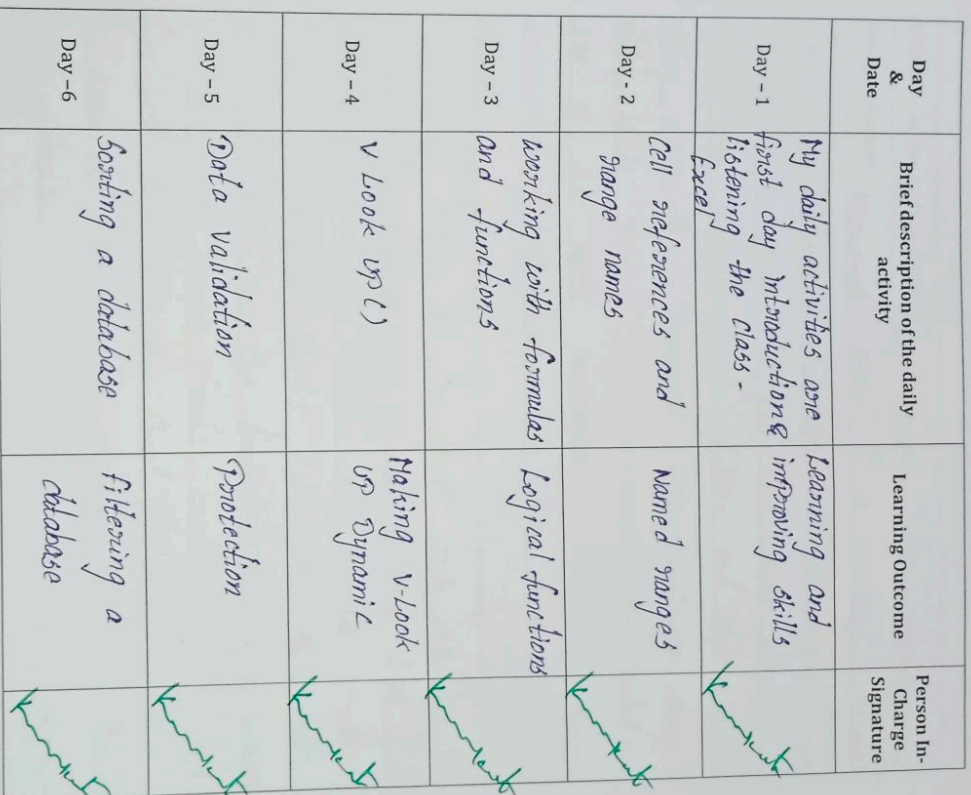 Day
&
Date
Brief description of the daily
activity
Learning Outcome
Person In-
Charge
Signature
Day - 1
My daily activities are
first day introduction &
listening the class -
Excel
Learning and
improving skills
Day - 2
Cell references and
range names
Named ranges
Day - 3
Working with formulas
and functions
Logical functions
Day - 4
V Look up ( )
Making V-Look
up Dynamic
Day - 5
Data Validation
Protection
Day - 6
Sorting a database
filtering a
database